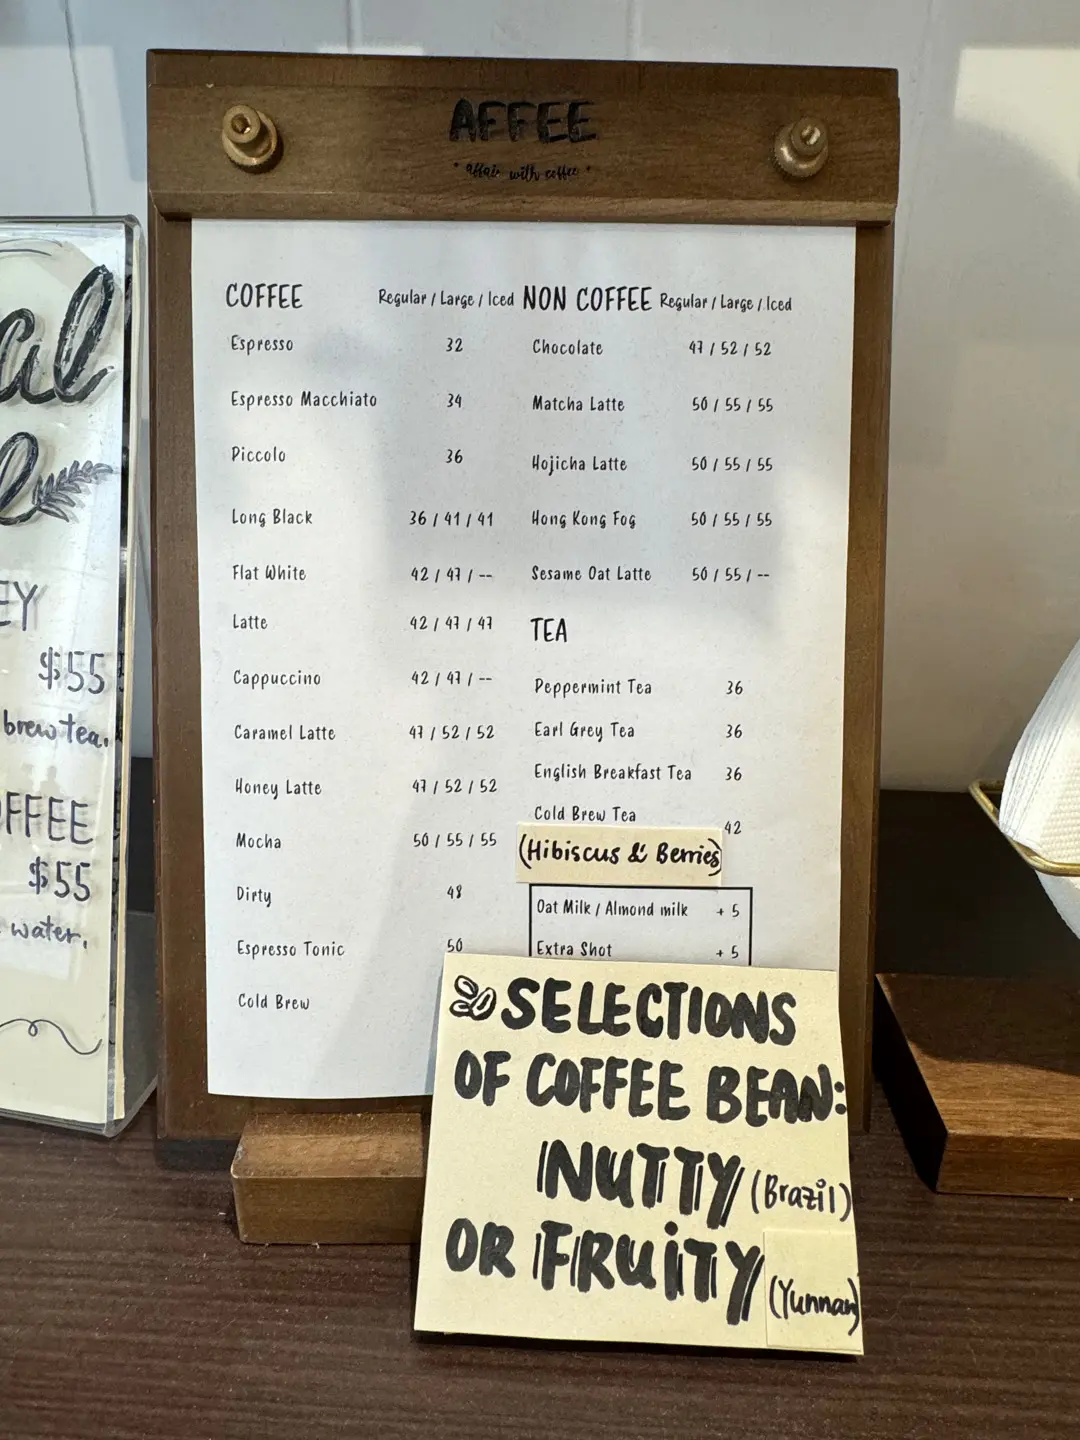 AFFEE
* affair with coffee *
COFFEE Regular / Large / Iced
Espresso 32
Espresso Macchiato 34
Piccolo 36
Long Black 36 / 41 / 41
Flat White 42 / 47 / --
Latte 42 / 47 / 47
Cappuccino 42 / 47 / --
Caramel Latte 47 / 52 / 52
Honey Latte 47 / 52 / 52
Mocha 50 / 55 / 55
Dirty 48
Espresso Tonic 50
Cold Brew
NON COFFEE Regular / Large / Iced
Chocolate 47 / 52 / 52
Matcha Latte 50 / 55 / 55
Hojicha Latte 50 / 55 / 55
Hong Kong Fog 50 / 55 / 55
Sesame Oat Latte 50 / 55 / --
TEA
Peppermint Tea 36
Earl Grey Tea 36
English Breakfast Tea 36
Cold Brew Tea 42
(Hibiscus & Berries)
Oat Milk / Almond milk + 5
Extra Shot + 5
SELECTIONS
OF COFFEE BEAN:
NUTTY (Brazil)
OR FRUiTY (Yunnan)
$55
brew tea.
$55
water.